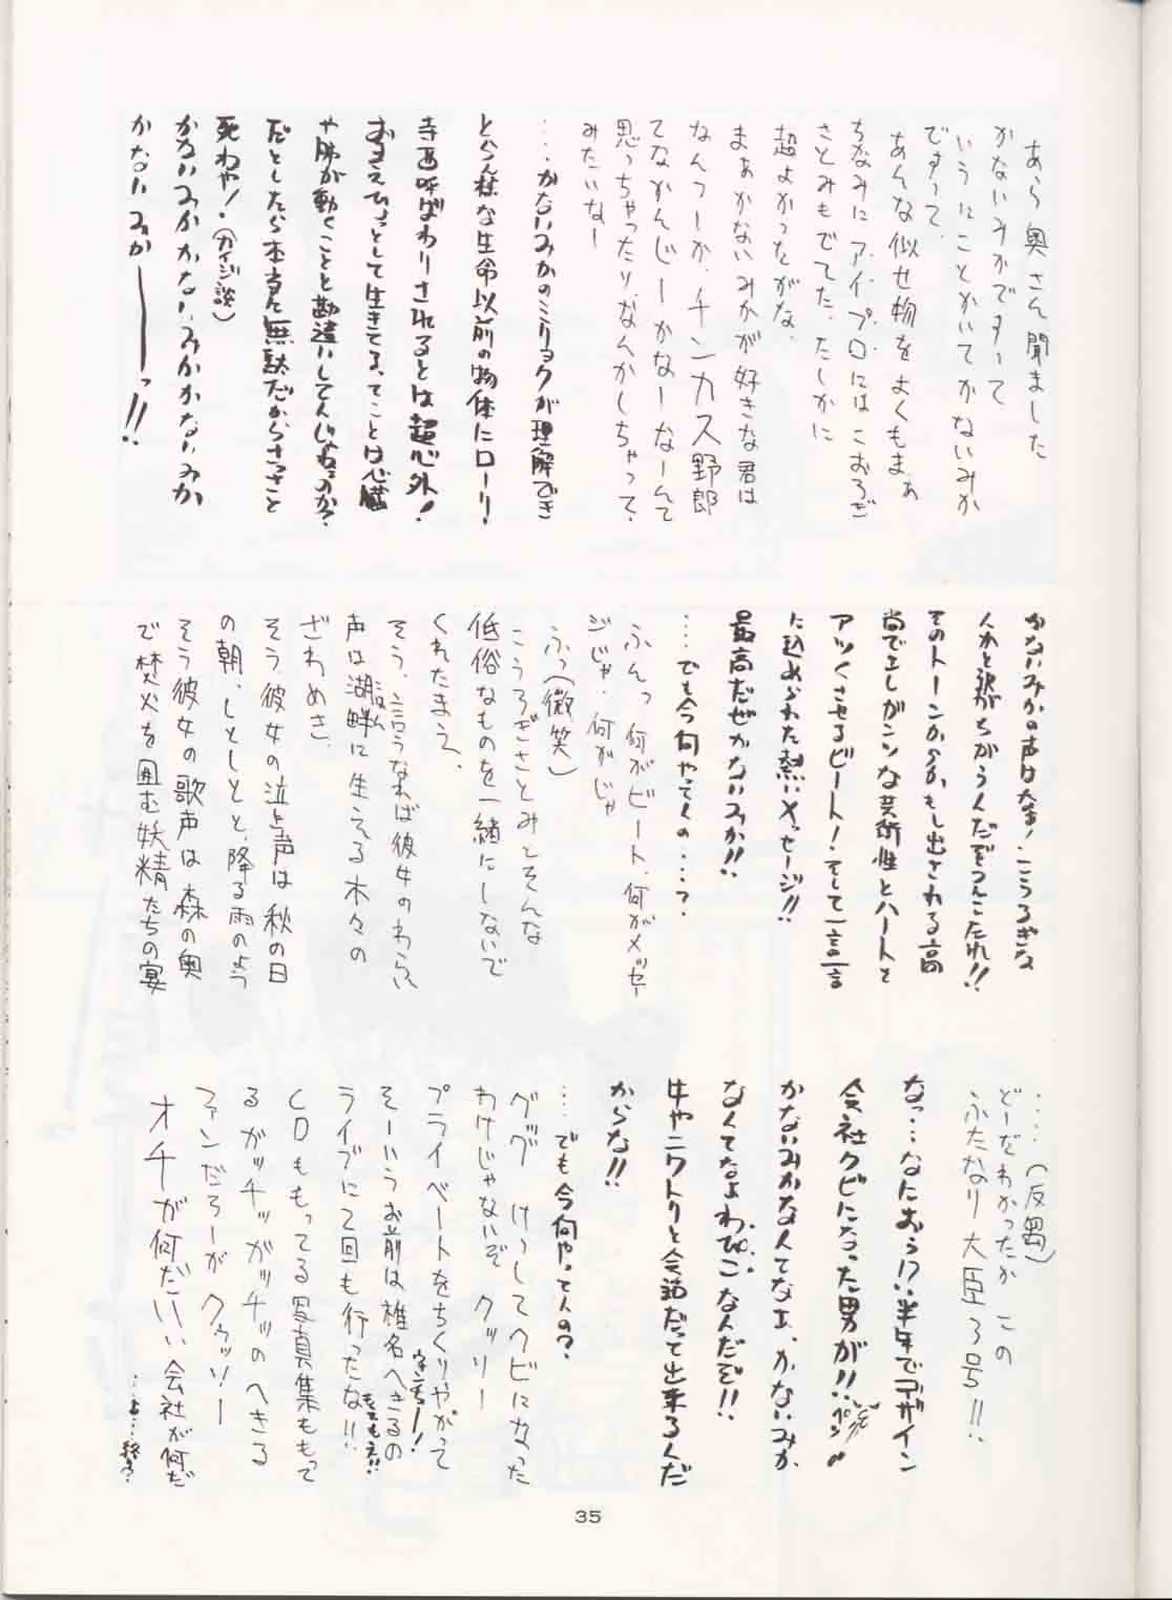 あら奥さん聞ました
かないみかですって
いうにことかいてかないみか
ですって、
あんな似せ物をよくもまぁ
ちなみにアイ・プロにはこおろぎ
さとみもでてた、たしかに
超よかったがな、
まぁかないみかが好きな君は
なんつーか、チンカス野郎
てなかんじーかなーなーんて
思っちゃったり、なんかしちゃって、
みたいなー
…かないみかのミリョクが理解でき
とらん様な生命以前の物体にローリ!
寺西呼ばわりされるとは超心外!
おまえひょっとして生きてる、てことは心臓
や肺が動くことと勘違いしてんじゃねぇのか?
だとしたら本当に無駄だからさっさと
死ねや!(カイジ談)
かないみかかないみかかないみか
かないみかーーっ!!
かないみかの声は大事!こうろぎな
んかと訳がちがうんだぞうんこたれ!!
そのトーンからかもし出される高
尚でエレガンツな芸術性とハートを
アツくさせるビート!そして一言一言
に込められた熱いメッセージ!!
最高だぜかないみか!!
…でも今何やってんの…?
ふんっ 何がビート、何がメッセー
ジじゃ、何がじゃ
ふっ(微笑)
こうろぎさとみをそんな
低俗なものを一緒にしないで
くれたまえ、
そう、言うなれば彼女のわらい
声は湖畔に生える木々の
こはん
ざわめき、
そう彼女の泣き声は秋の日
の朝、しとしとと、降る雨のよう
そう彼女の歌声は森の奥
で焚火を囲む妖精たちの宴
……(反芻)
どーだわかったか この
ふたなり大臣3号!!
なっ…なにおぅ!?半年でデザイン
会社クビになった男が!!
かないみかなんてなェ、かないみか
なくてなよわぴこなんだぞ!!
牛やニワトリと会話だって出来るんだ
からな!!
…でも今何やってんの?
ググ けっしてクビになった
わけじゃないぞ クッソー
プライベートをちくりやがって
ウンチョー!
そーいうお前は椎名へきるの
もってもえ!!
ライブにて回も行ったな!!
CDももってる写真集ももって
るガッチッガッチッのへきる
ファンだろーが クゥッソー
オチが何だいい会社が何だ
…よ…終る?
35